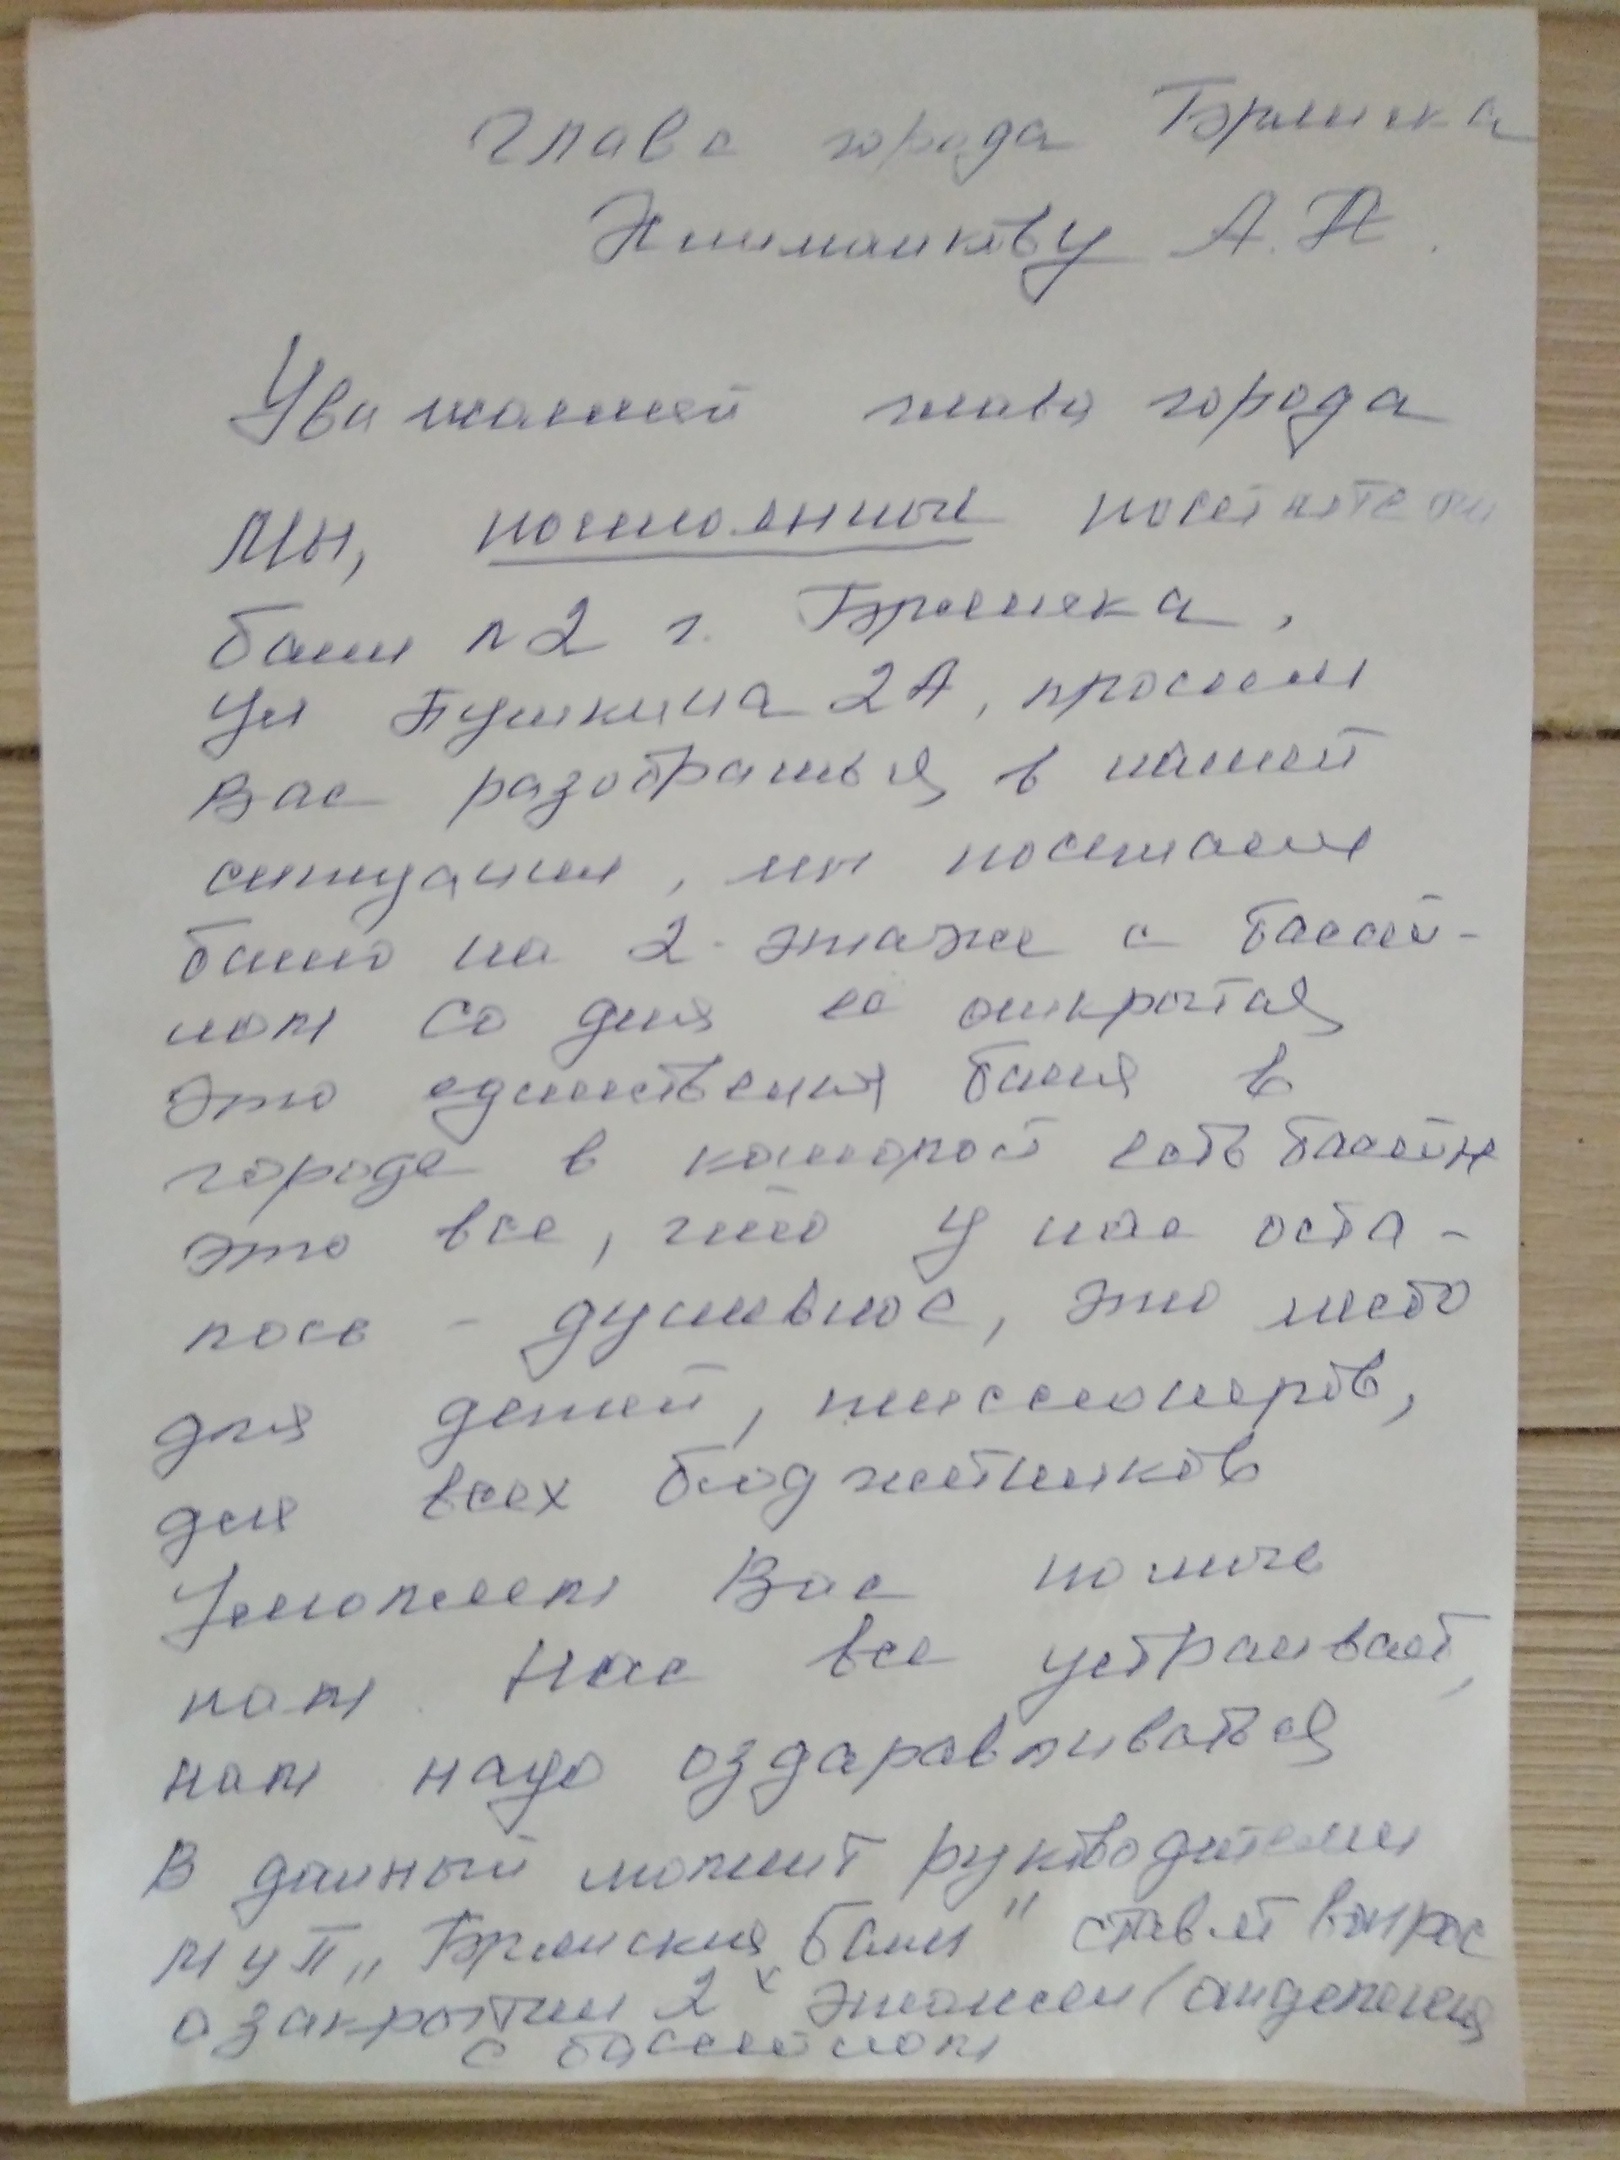 Главе города Брянска
А. А.
Уважаемый глава города
Мы, постоянные посетители
бани n 2 г. Брянска,
ул Пушкина 2А, просим
Вас разобраться в нашей
ситуации, мы посещаем
баню на 2 этаже с бассей-
ном со дня ее открытия
Это единственная баня в
городе в которой есть бассейн
это все, что у нас оста-
лось - душевное, это место
для детей, пенсионеров,
для всех бюджетников
Умоляем Вас помочь
нам. Нас все устраивает,
нам надо оздаравливаться
В данный момент руководители
МУП „Брянские бани" ставят вопрос
о закрытии 2х этажей (отделения
с бассейном